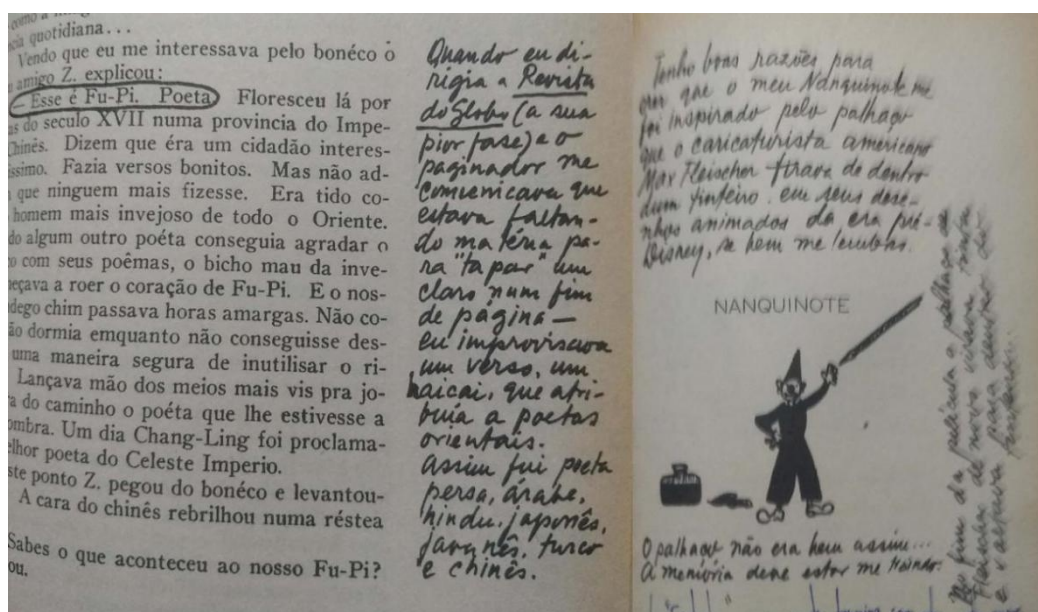 quotidiana...
Vendo que eu me interessava pelo bonéco o
amigo Z. explicou:
— Esse é Fu-Pi. Poeta. Floresceu lá por
do seculo XVII numa provincia do Impe-
Chinês. Dizem que éra um cidadão interes-
issimo. Fazia versos bonitos. Mas não ad-
que ninguem mais fizesse. Era tido co-
homem mais invejoso de todo o Oriente.
do algum outro poéta conseguia agradar o
com seus poêmas, o bicho mau da inve-
eçava a roer o coração de Fu-Pi. E o nos-
dego chim passava horas amargas. Não co-
ão dormia emquanto não conseguisse des-
uma maneira segura de inutilisar o ri-
Lançava mão dos meios mais vis pra jo-
do caminho o poéta que lhe estivesse a
ombra. Um dia Chang-Ling foi proclama-
elhor poeta do Celeste Imperio.
ste ponto Z. pegou do bonéco e levantou-
A cara do chinês rebrilhou numa réstea
Sabes o que aconteceu ao nosso Fu-Pi?
ou.
Quando eu di-
rigia a Revista
do Globo (a sua
pior fase) e o
paginador me
comunicava que
estava faltan-
do matéria pa-
ra "tapar" um
claro num fim
de página —
eu improvisava
um verso, um
haicai, que atri-
buia a poetas
orientais.
Assim fui poeta
persa, árabe,
hindu, japonês,
javanês, turco
e chinês.
Tenho boas razões para
crer que o meu Nanquinote me
foi inspirado pelo palhaço
que o caricaturista americano
Max Fleischer tirava de dentro
dum tinteiro em seus dese-
nhos animados da era pré-
Disney, se bem me lembro.
NANQUINOTE
O palhaço não era bem assim...
A memória deve estar me traindo.
No fim da película o palhaço de
Fleischer de novo virava tinta
e voltava para dentro do
tinteiro...